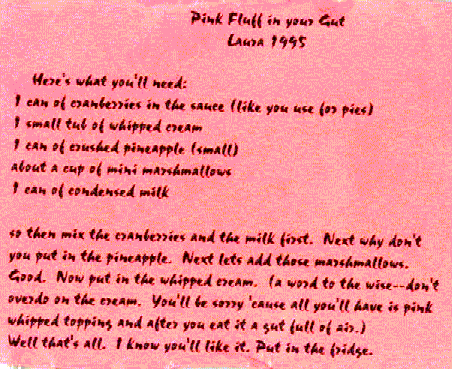 Pink Fluff in your Gut
Laura 1995
Here's what you'll need:
1 can of cranberries in the sauce (like you use for pies)
1 small tub of whipped cream
1 can of crushed pineapple (small)
about a cup of mini marshmallows
1 can of condensed milk
so then mix the cranberries and the milk first. Next why don't
you put in the pineapple. Next lets add those marshmallows.
Good. Now put in the whipped cream. (a word to the wise--don't
overdo on the cream. You'll be sorry 'cause all you'll have is pink
whipped topping and after you eat it a gut full of air.)
Well that's all. I know you'll like it. Put in the fridge.